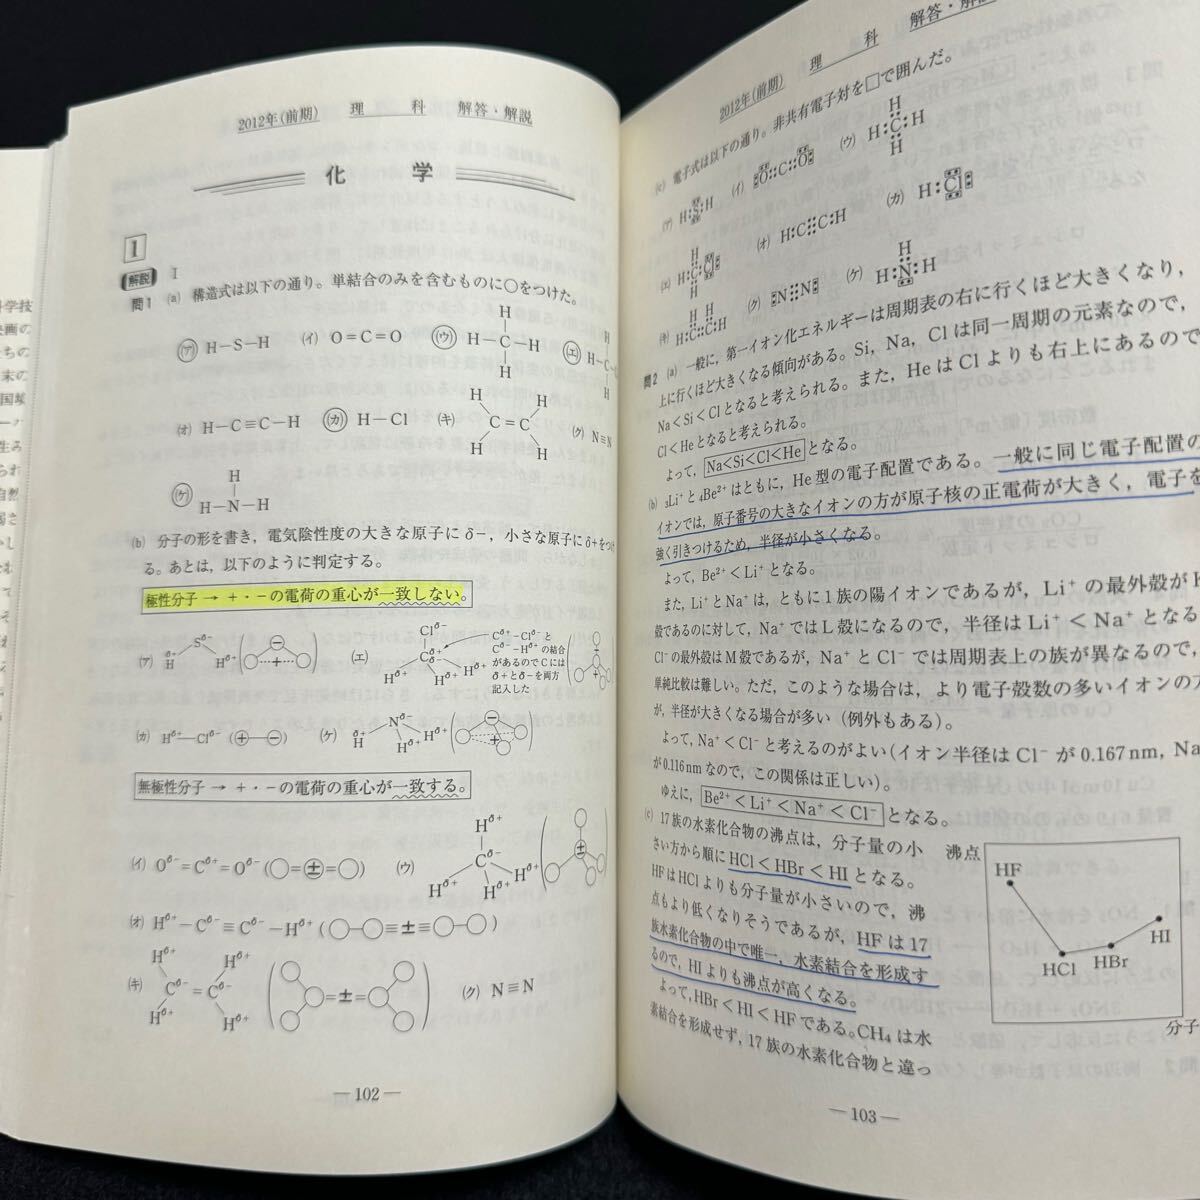 2012年(前期) 理 科 解答・解説
化 学
1
解説 Ⅰ
問1 (a) 構造式は以下の通り。単結合のみを含むものに○をつけた。
(ア) H－S－H (イ) O＝C＝O (ウ) H－C－H H H (エ) H－C H H
(オ) H－C≡C－H (カ) H－Cl (キ) H H C＝C H H (ク) N≡N
(ケ) H H－N－H
(b) 分子の形を書き，電気陰性度の大きな原子にδ－，小さな原子にδ＋をつけ
る。あとは，以下のように判定する。
極性分子 → ＋・－の電荷の重心が一致しない。
(ア) Hδ+ Sδ- Hδ+ (エ) Clδ- Cδ+ δ- Hδ+ Hδ+ Hδ+
Cδ+－Clδ-と
Cδ-－Hδ+の結合
があるのでCには
δ＋とδ－を両方
記入した
(カ) Hδ+－Clδ- (＋－) (ケ) Nδ- Hδ+ Hδ+ Hδ+
無極性分子 → ＋・－の電荷の重心が一致する。
(イ) Oδ-＝Cδ+＝Oδ- (○＝±＝○) (ウ) Hδ+ Cδ- Hδ+ Hδ+ Hδ+
(オ) Hδ+－Cδ-≡Cδ-－Hδ+ (○－○≡±≡○－○)
(キ) Hδ+ Hδ+ Cδ-＝Cδ- Hδ+ Hδ+ (○＝±＝○) (ク) N≡N
― 102 ―
2012年(前期) 理 科 解答・解
(c) 電子式は以下の通り。非共有電子対を□で囲んだ。
(ア) H:S:H (イ) O::C::O (ウ) H H:C:H H
(エ) H H:C:Cl H (オ) H:C:::C:H (カ) H:Cl
(キ) H H H:C::C:H (ク) N:::N (ケ) H H:N:H
問2 (a) 一般に，第一イオン化エネルギーは周期表の右に行くほど大きくなり，
上に行くほど大きくなる傾向がある。Si，Na，Clは同一周期の元素なので，
Na＜Si＜Clとなると考えられる。また，HeはClよりも右上にあるので
Cl＜Heとなると考えられる。
よって，Na＜Si＜Cl＜Heとなる。
(b) ₃Li⁺と₄Be²⁺はともに，He型の電子配置である。一般に同じ電子配置の
イオンでは，原子番号の大きなイオンの方が原子核の正電荷が大きく，電子を
強く引きつけるため，半径が小さくなる。
よって，Be²⁺＜Li⁺となる。
また，Li⁺とNa⁺は，ともに1族の陽イオンであるが，Li⁺の最外殻がK
殻であるのに対して，Na⁺ではL殻になるので，半径はLi⁺＜Na⁺となる
Cl⁻の最外殻はM殻であるが，Na⁺とCl⁻では周期表上の族が異なるので，
単純比較は難しい。ただ，このような場合は，より電子殻数の多いイオンの方
が，半径が大きくなる場合が多い（例外もある）。
よって，Na⁺＜Cl⁻と考えるのがよい（イオン半径はCl⁻が0.167nm，Na
が0.116nmなので，この関係は正しい）。
ゆえに，Be²⁺＜Li⁺＜Na⁺＜Cl⁻となる。
(c) 17族の水素化合物の沸点は，分子量の小
さい方から順にHCl＜HBr＜HIとなる。
HFはHClよりも分子量が小さいので，沸
点もより低くなりそうであるが，HFは17
族水素化合物の中で唯一，水素結合を形成す
るので，HIよりも沸点が高くなる。
よって，HBr＜HI＜HFである。CH₄は水
素結合を形成せず，17族の水素化合物と違っ
沸点
HF
HCl HBr HI
分子
― 103 ―